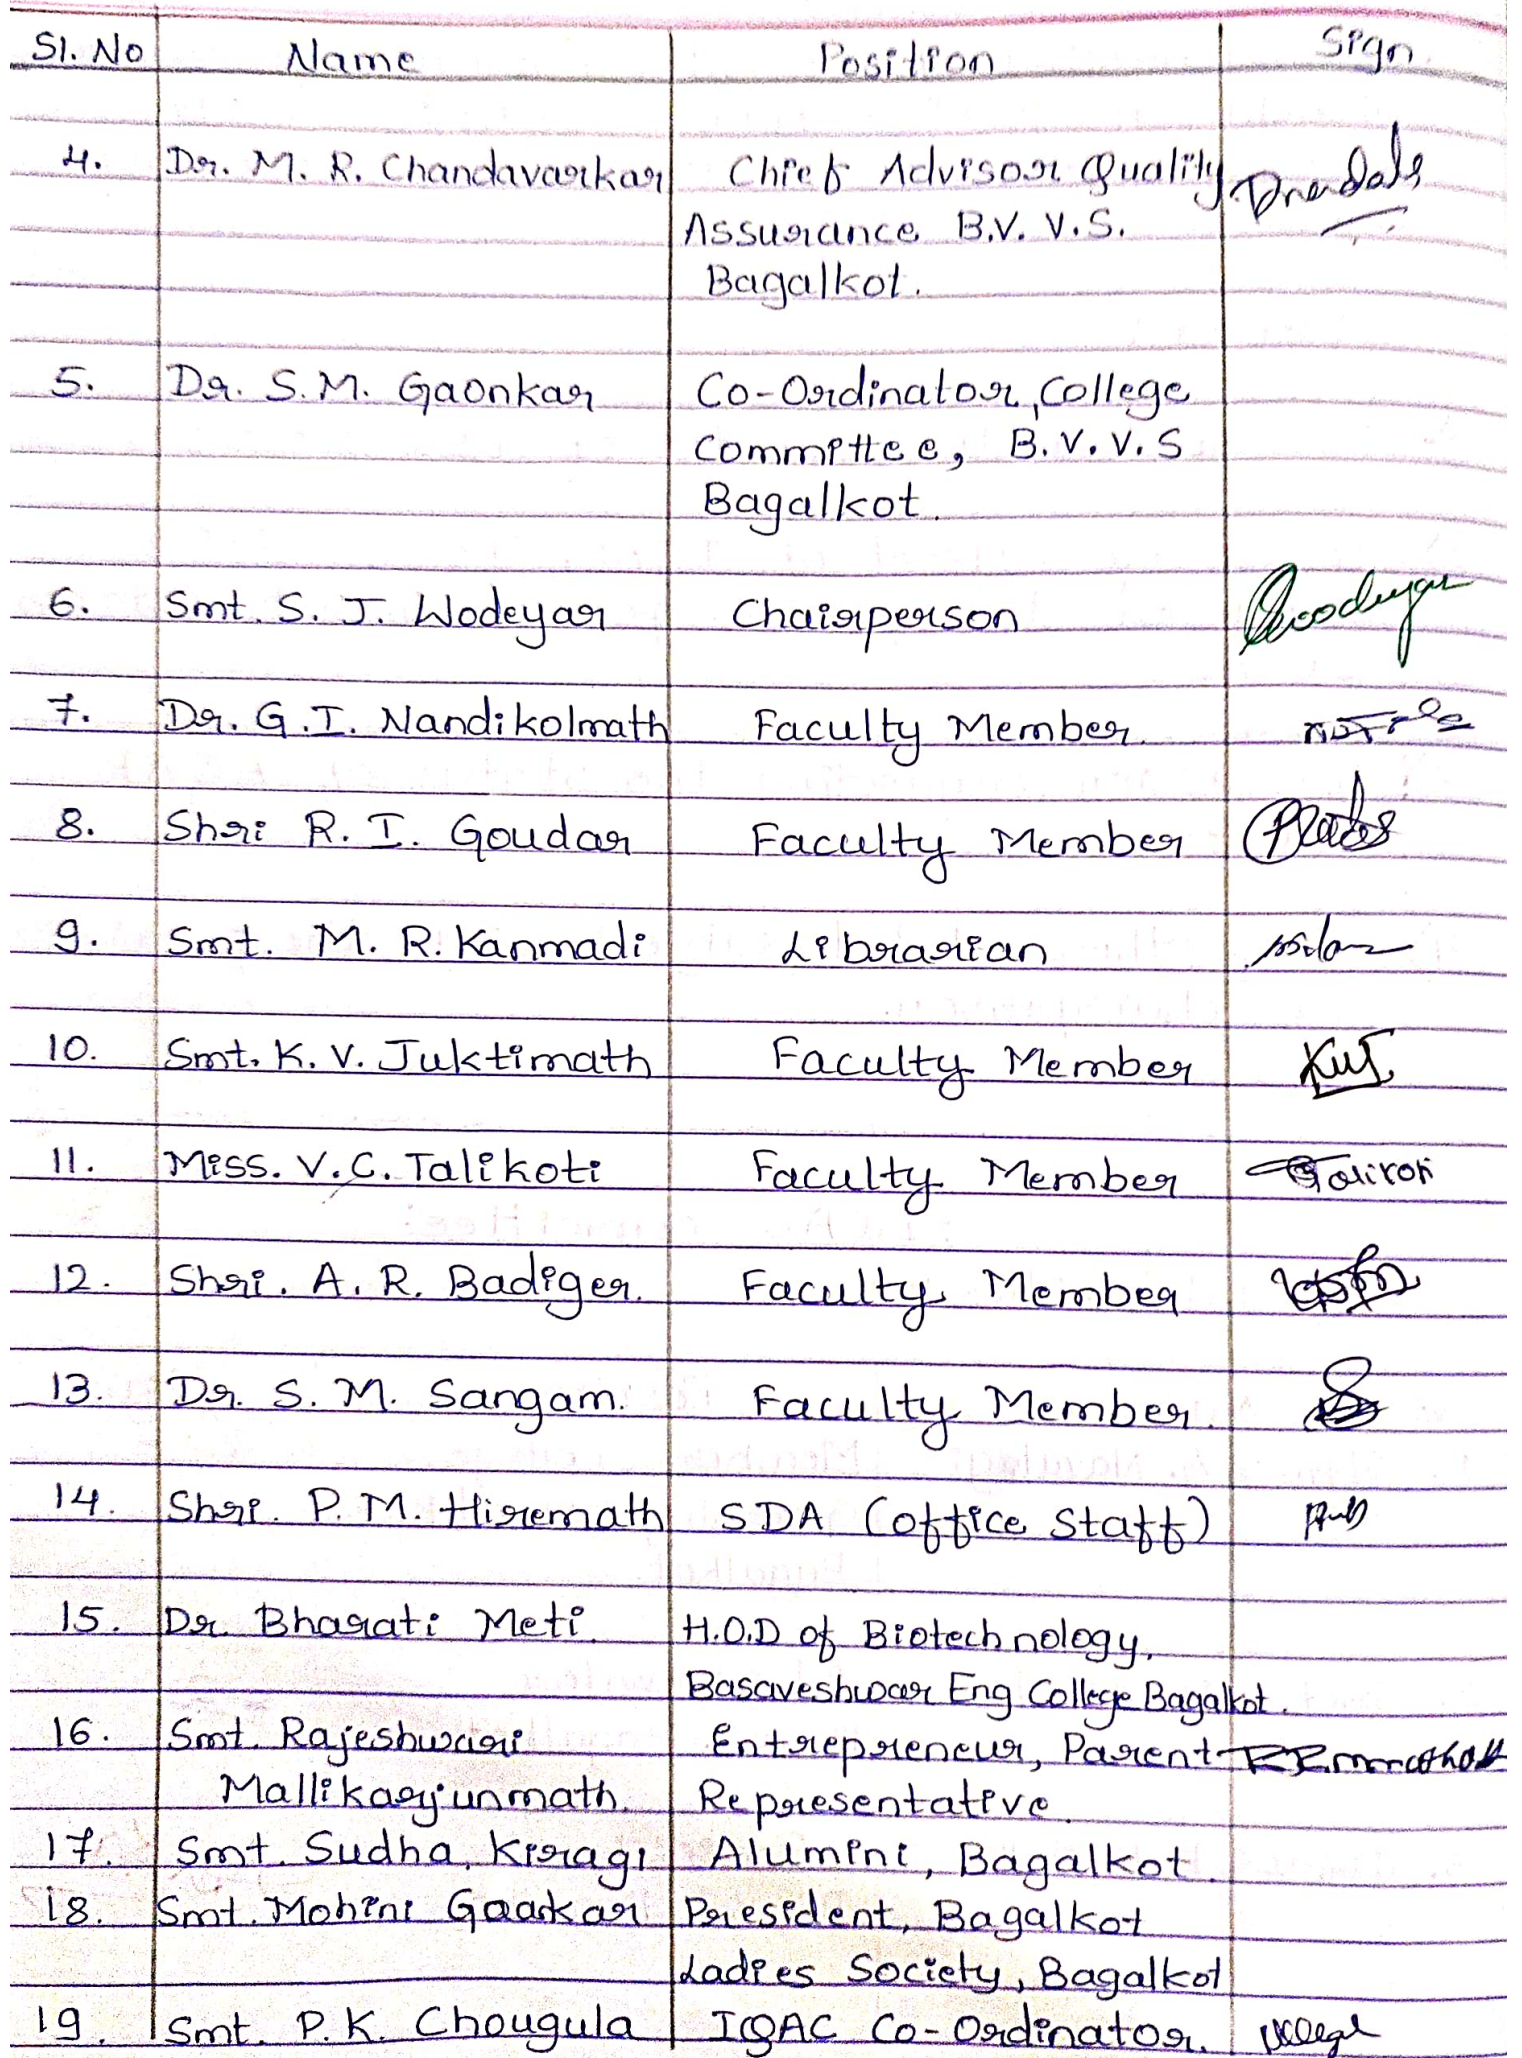 Sl. No Name Position Sign
4. Dr. M. R. Chandavarkar Chief Advisor Quality
Assurance B.V. V.S.
Bagalkot.
5. Dr. S.M. Gaonkar Co-Ordinator, College
Committee, B.V.V.S
Bagalkot.
6. Smt. S. J. Wodeyar Chairperson
7. Dr. G.I. Nandikolmath Faculty Member.
8. Shri R. I. Goudar Faculty Member
9. Smt. M. R. Kanmadi Librarian
10. Smt. K. V. Juktimath Faculty Member KVJ
11. Miss. V.C. Talikoti Faculty Member Talikoti
12. Shri. A. R. Badiger. Faculty Member
13. Dr. S. M. Sangam. Faculty Member.
14. Shri. P. M. Hiremath SDA (office Staff)
15. Dr. Bharati Meti. H.O.D of Biotechnology,
Basaveshwar Eng College Bagalkot.
16. Smt. Rajeshwari Entrepreneur, Parent
Mallikarjunmath. Representative.
17. Smt. Sudha, Kiragi Alumini, Bagalkot.
18. Smt. Mohini Gaarkar President, Bagalkot
Ladies Society, Bagalkot
19. Smt. P. K. Chougula IQAC Co-Ordinator.